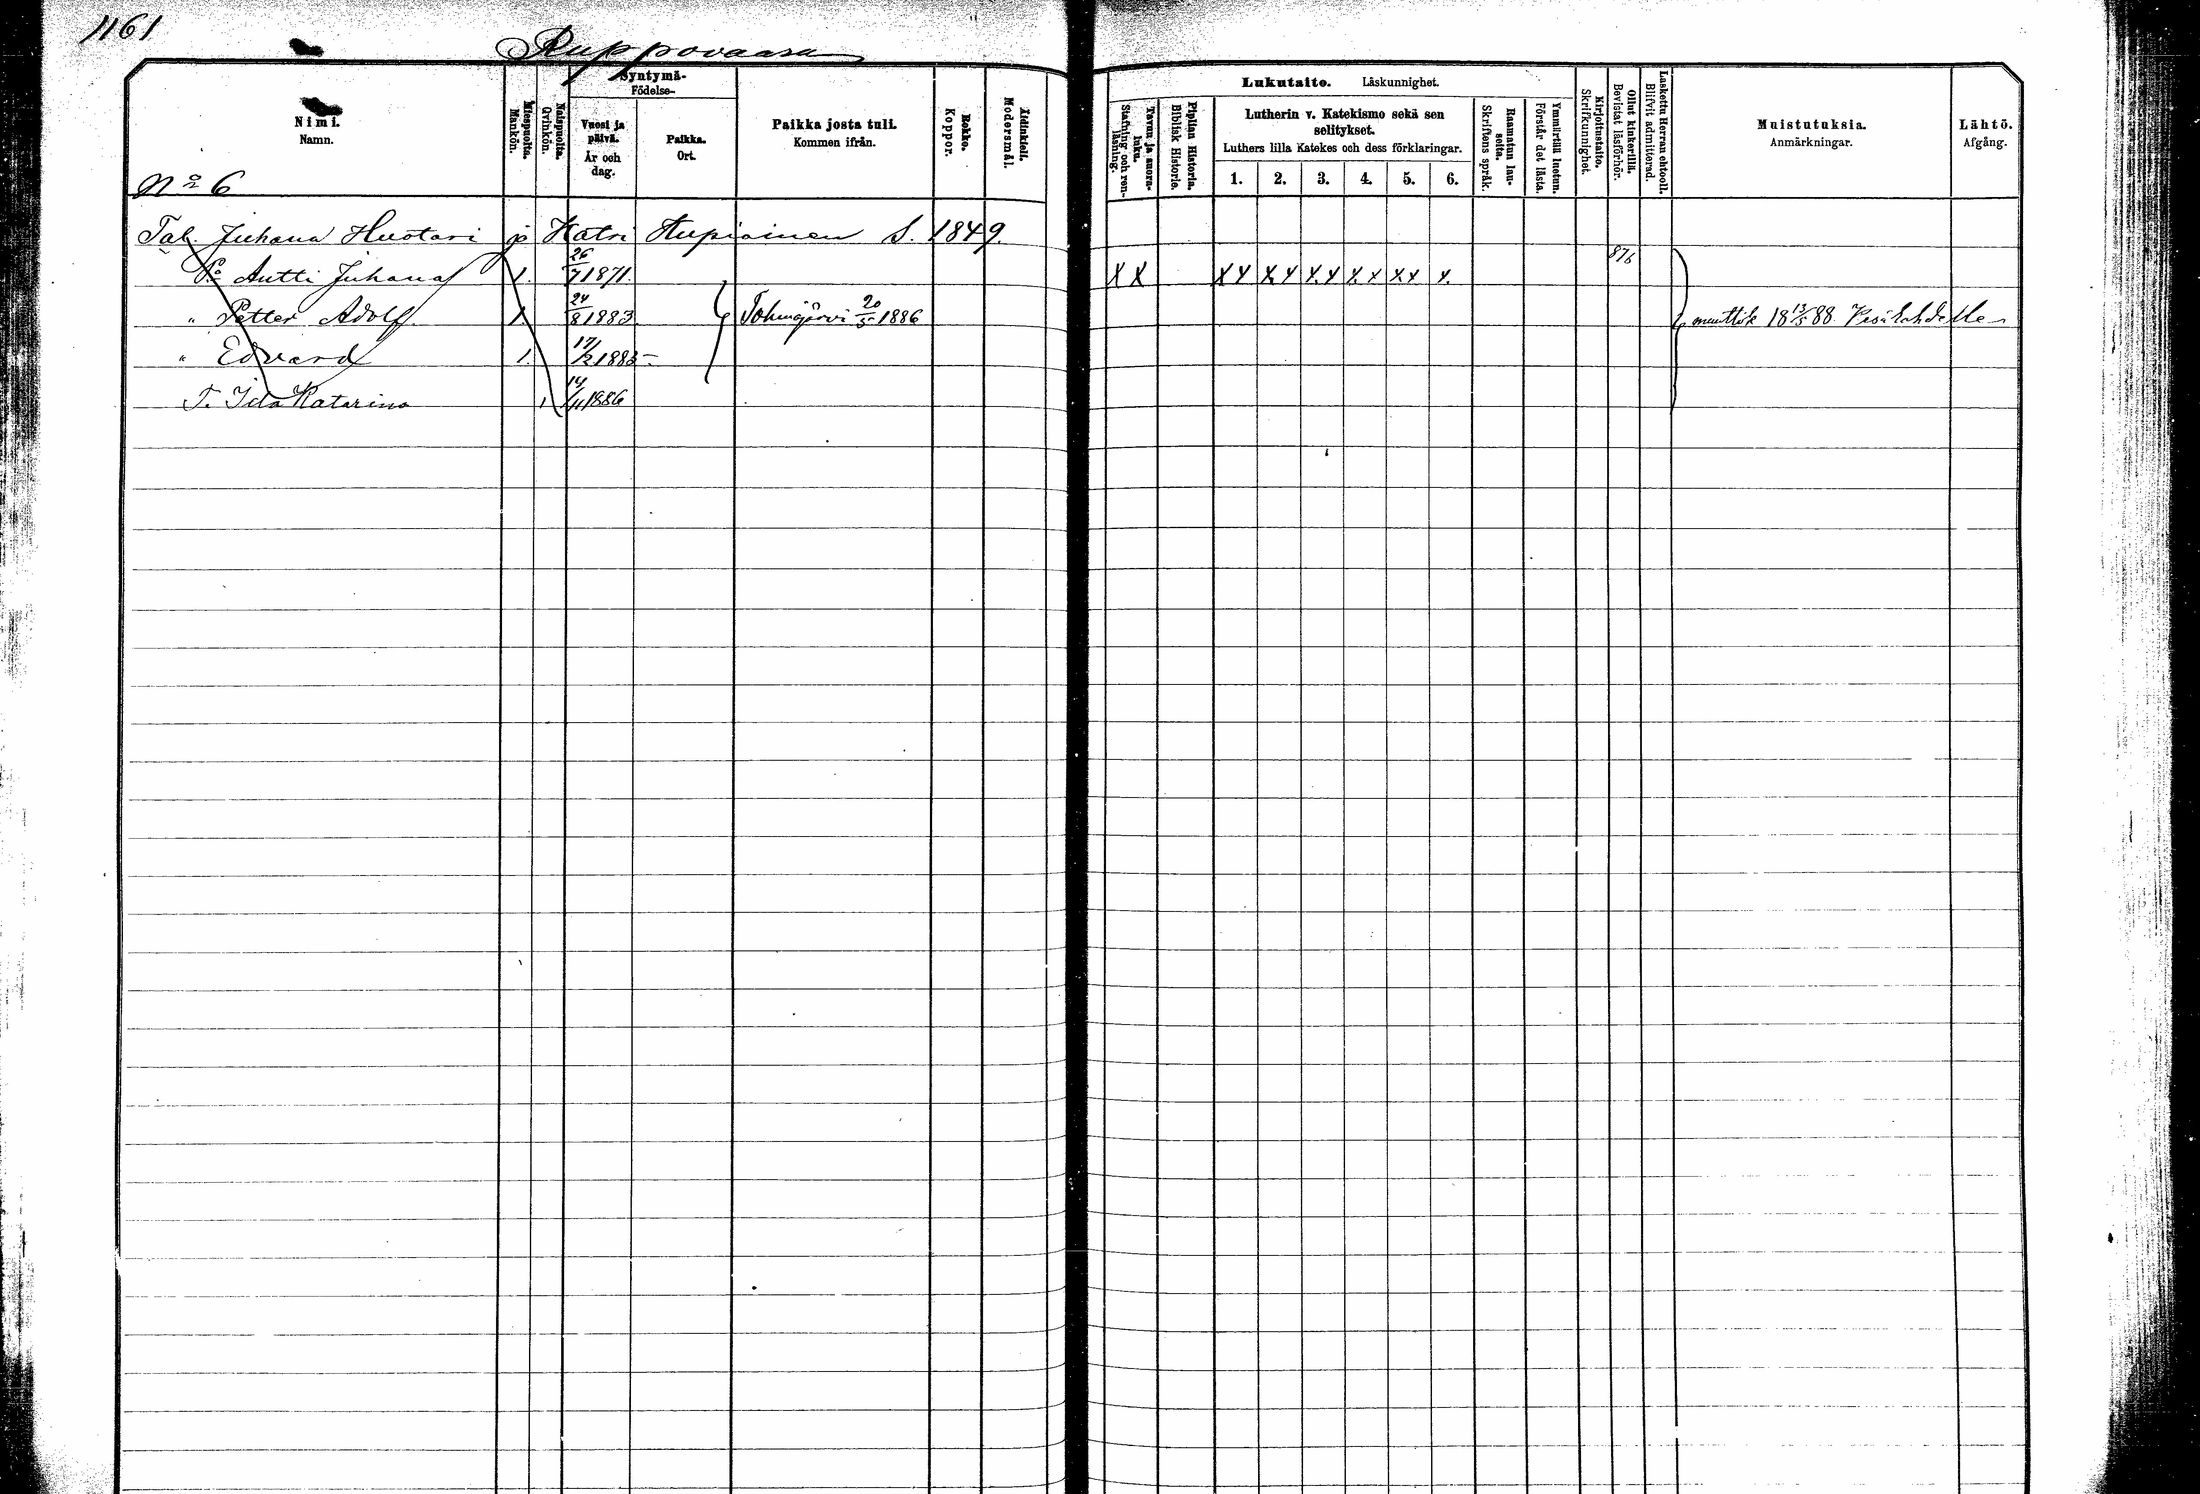 1161
Ruppovaara
Nimi.
Namn.
Miespuolta.
Mankön.
Naispuolta.
Qvinkön.
Syntymä-
Födelse-
Vuosi ja päivä.
År och dag.
Paikka.
Ort.
Paikka josta tuli.
Kommen ifrån.
Rokko.
Koppor.
Äidinkieli.
Modersmål.
Lukutaito. Läskunnighet.
Tavuu ja suora-luku.
Stafning och ren-läsning.
Piplian Historia.
Biblisk Historie.
Lutherin v. Katekismo sekä sen
selitykset.
Luthers lilla Katekes och dess förklaringar.
1. 2. 3. 4. 5. 6.
Raamatun lau-seita.
Skriftens språk.
Ymmärtää luetun.
Förstår det lästa.
Kirjoitustaito.
Skrifkunnighet.
Ollut kinkerillä.
Bevistat läsförhör.
Laskettu Herran ehtooll.
Blifvit admitterad.
Muistutuksia.
Anmärkningar.
Lähtö.
Afgång.
No 6
Tal. Juhana Huotari ja Katri Hupiainen S. 1849.
Po. Antti Juhana 1. 26/7 1871. X X X X X X X X X X X X X. 876
" Petter Adolf. 1. 24/8 1883. Tohmajärvi 20/5 1886 18 13/5 88 Kesälahdelle
" Edvard 1. 17/2 1885
T. Ida Katarina 1 14/11 1886